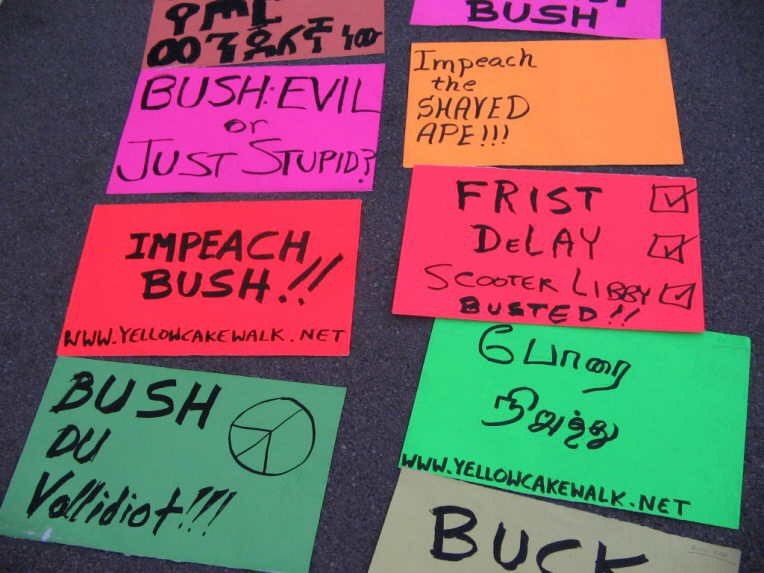 ወንጀለኛ ነው
BUSH
BUSH: EVIL
or
JUST STUPID?
Impeach
the
SHAVED
APE!!!
IMPEACH
BUSH!!
WWW.YELLOWCAKEWALK.NET
FRIST
DeLAY
SCOOTER LIBBY
BUSTED!!
BUSH
DU
Vollidiot!!!
போரை
நிறுத்து
WWW.YELLOWCAKEWALK.NET
BUCK